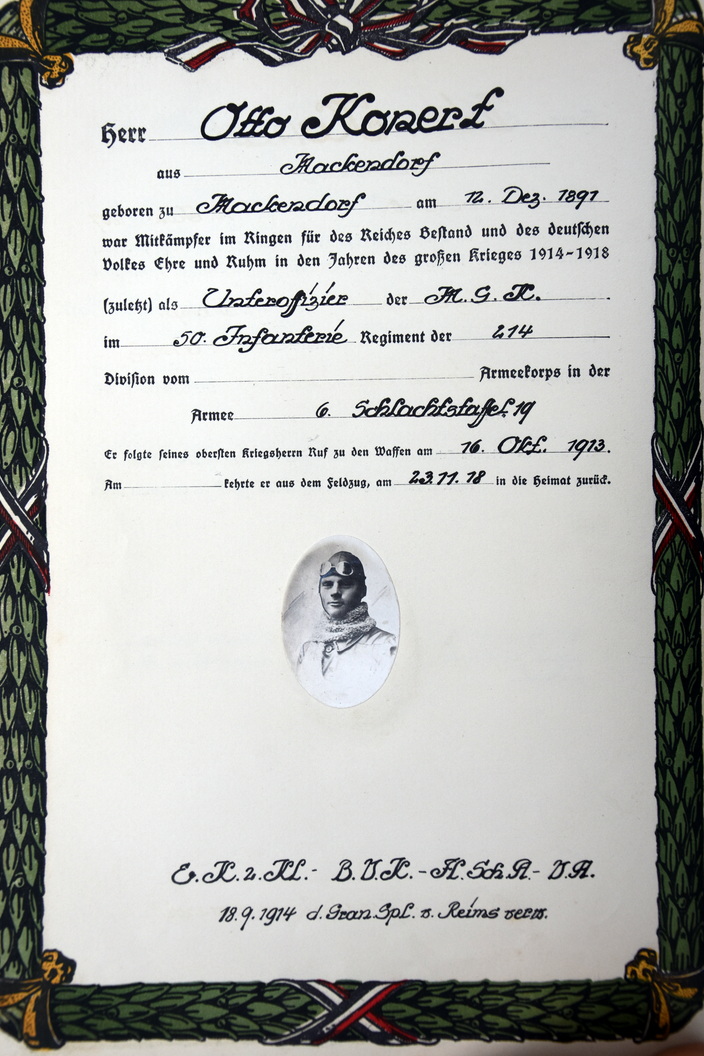 Herr Otto Konert
aus Mackendorf
geboren zu Mackendorf am 12. Dez. 1891
war Mitkämpfer im Ringen für des Reiches Bestand und des deutschen
Volkes Ehre und Ruhm in den Jahren des großen Krieges 1914-1918
(zuletzt) als Unteroffizier der M. G. K.
im 50. Infanterie Regiment der 214
Division vom Armeekorps in der
Armee 6. Schlachtstaffel 19
Er folgte seines obersten Kriegsherrn Ruf zu den Waffen am 16. Okt. 1913.
Am kehrte er aus dem Feldzug, am 23.11.18 in die Heimat zurück.
E. K. 2. Kl. - B. V. K. - A. Sch. A. - V. A.
18. 9. 1914 d. Gran. Spl. v. Reims verw.